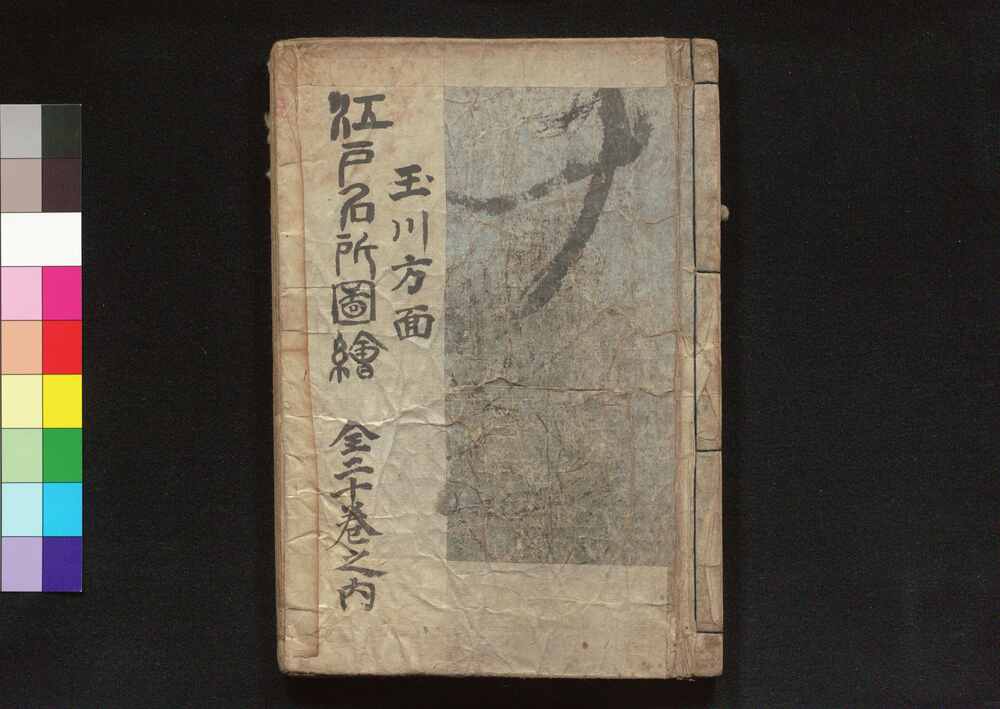 玉川方面
江戸名所圖繪 全二十巻之内